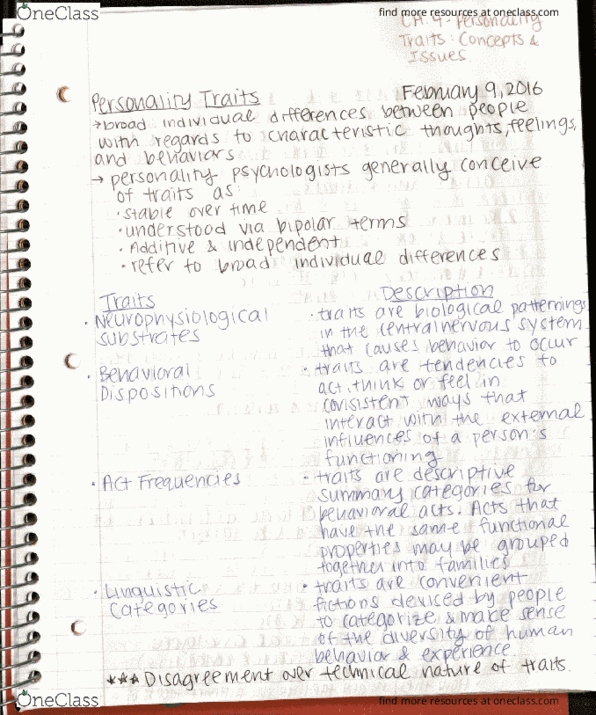 OneClass
find more resources at oneclass.com
CH. 4 - Personality
Traits: Concepts &
Issues
Personality Traits
February 9, 2016
→ broad individual differences between people
with regards to characteristic thoughts, feelings,
and behaviors
→ personality psychologists generally conceive
of traits as:
· stable over time
· understood via bipolar terms
· Additive & independent
· refer to broad individual differences
Traits
Description
· Neurophysiological
substrates
· traits are biological patternings
in the central nervous system
that causes behavior to occur
· Behavioral
Dispositions
· traits are tendencies to
act, think or feel in
consistent ways that
interact with the external
influences of a person's
functioning
· Act Frequencies
· traits are descriptive
summary categories for
behavioral acts. Acts that
have the same functional
properties may be grouped
together into families
· Linguistic
Categories
· traits are convenient
fictions devised by people
to categorize & make sense
of the diversity of human
behavior & experience
*** Disagreement over technical nature of traits.
OneClass
find more resources at oneclass.com